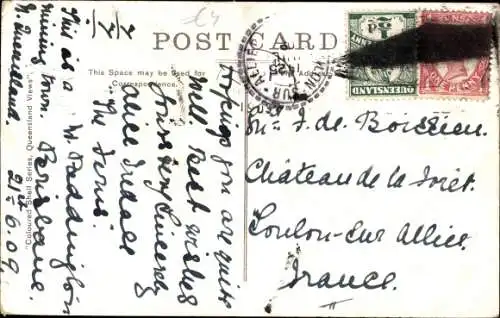 POST CARD
This Space may be used for
Correspondence.
"Coloured Shell Series, Queensland Views"
This is a
mining town
N. Queensland.
Hoping you are quite
well Best wishes
Yours very Sincerely
Alice
"The Ferns"
W. Paddington
Brisbane.
21-6.09
QUEENSLAND
ONE PENNY
de Boissieu
Château de la Forêt
Toulon-sur-Allier
France.